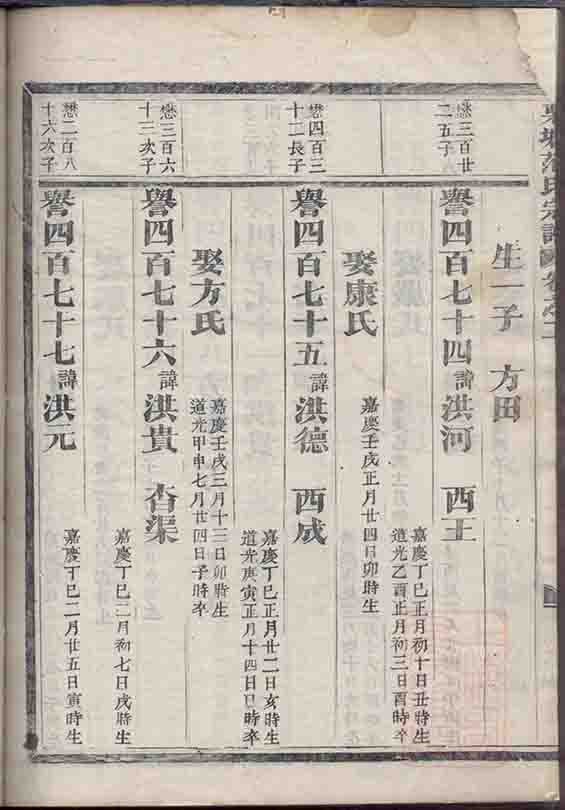 氏宗譜 卷之二
生一子 方田
懋三百廿
二五子
譽四百七十四諱洪河 西王
嘉慶丁巳正月初十日丑時生
道光乙酉正月初三日酉時卒
娶康氏
嘉慶壬戌正月廿四日卯時生
懋四百三
十二長子
譽四百七十五諱洪德 西成
嘉慶丁巳正月廿二日亥時生
道光庚寅正月十四日巳時卒
娶方氏
嘉慶壬戌三月十三日卯時生
道光甲申七月廿四日子時卒
懋三百六
十三次子
譽四百七十六諱洪貴 杳渠
嘉慶丁巳二月初七日戌時生
懋二百八
十六次子
譽四百七十七諱洪元
嘉慶丁巳二月廿五日寅時生